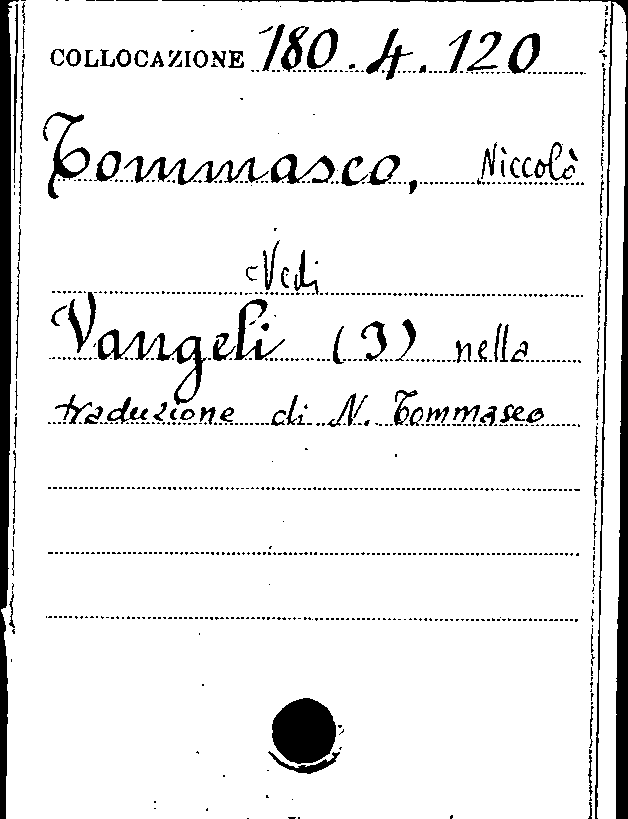 COLLOCAZIONE 180.4.120
Tommaseo, Niccolò
Vedi
Vangeli (I) nella
traduzione di N. Tommaseo